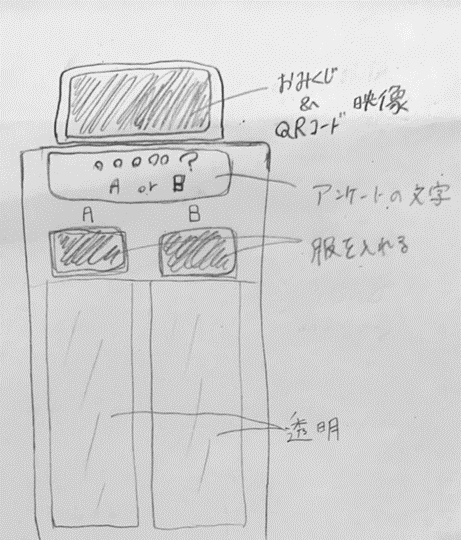 おみくじ
&
QRコード 映像
ooooo?
A or B
アンケートの文字
A B
服を入れる
透明